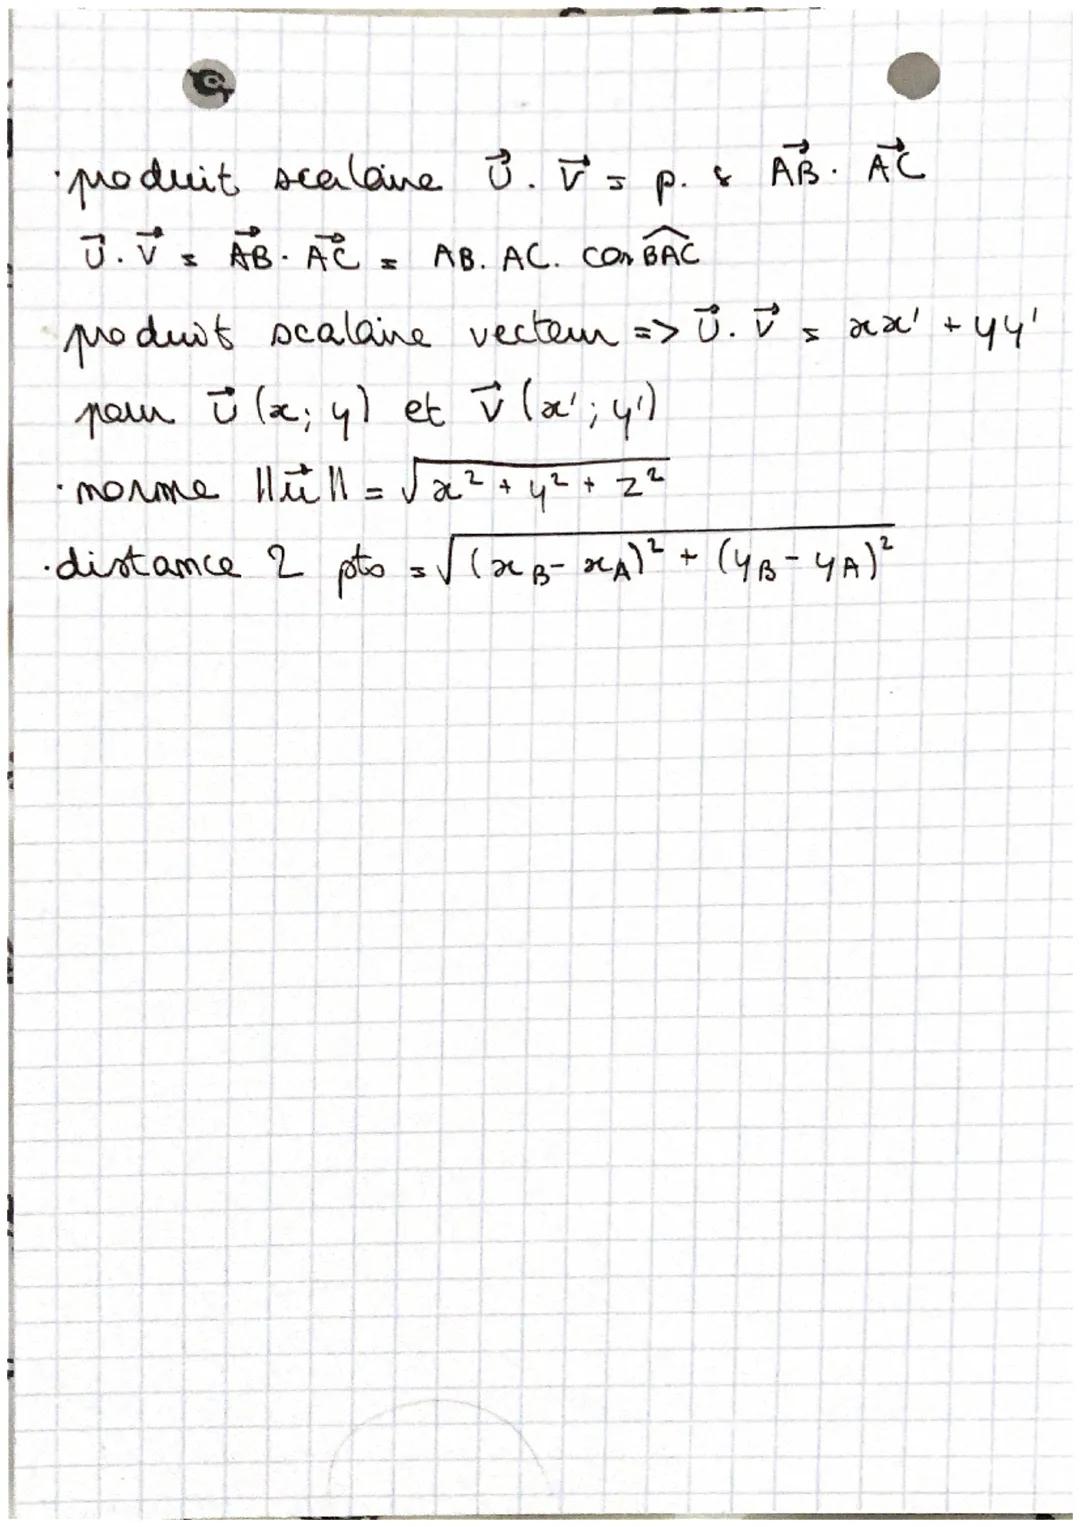 · produit scalaire U⃗ . V⃗ = p. s AB⃗ . AC⃗
U⃗ . V⃗ = AB⃗ . AC⃗ = AB. AC. cos B̂AC
produit scalaire vecteur => U⃗ . V⃗ = xx' + yy'
pour U⃗ (x; y) et V⃗ (x'; y')
· norme ||u⃗|| = √(x² + y² + z²)
· distance 2 pts = √((xB - xA)² + (yB - yA)²)